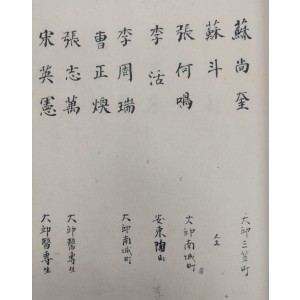 蘇尚奎 大邱三笠町
蘇斗
張何鳴 大邱南城町
李活 安東陶山
李周瑞 大邱南城町
曹正煥
張志萬 大邱醫專生
宋英憲 大邱醫專生